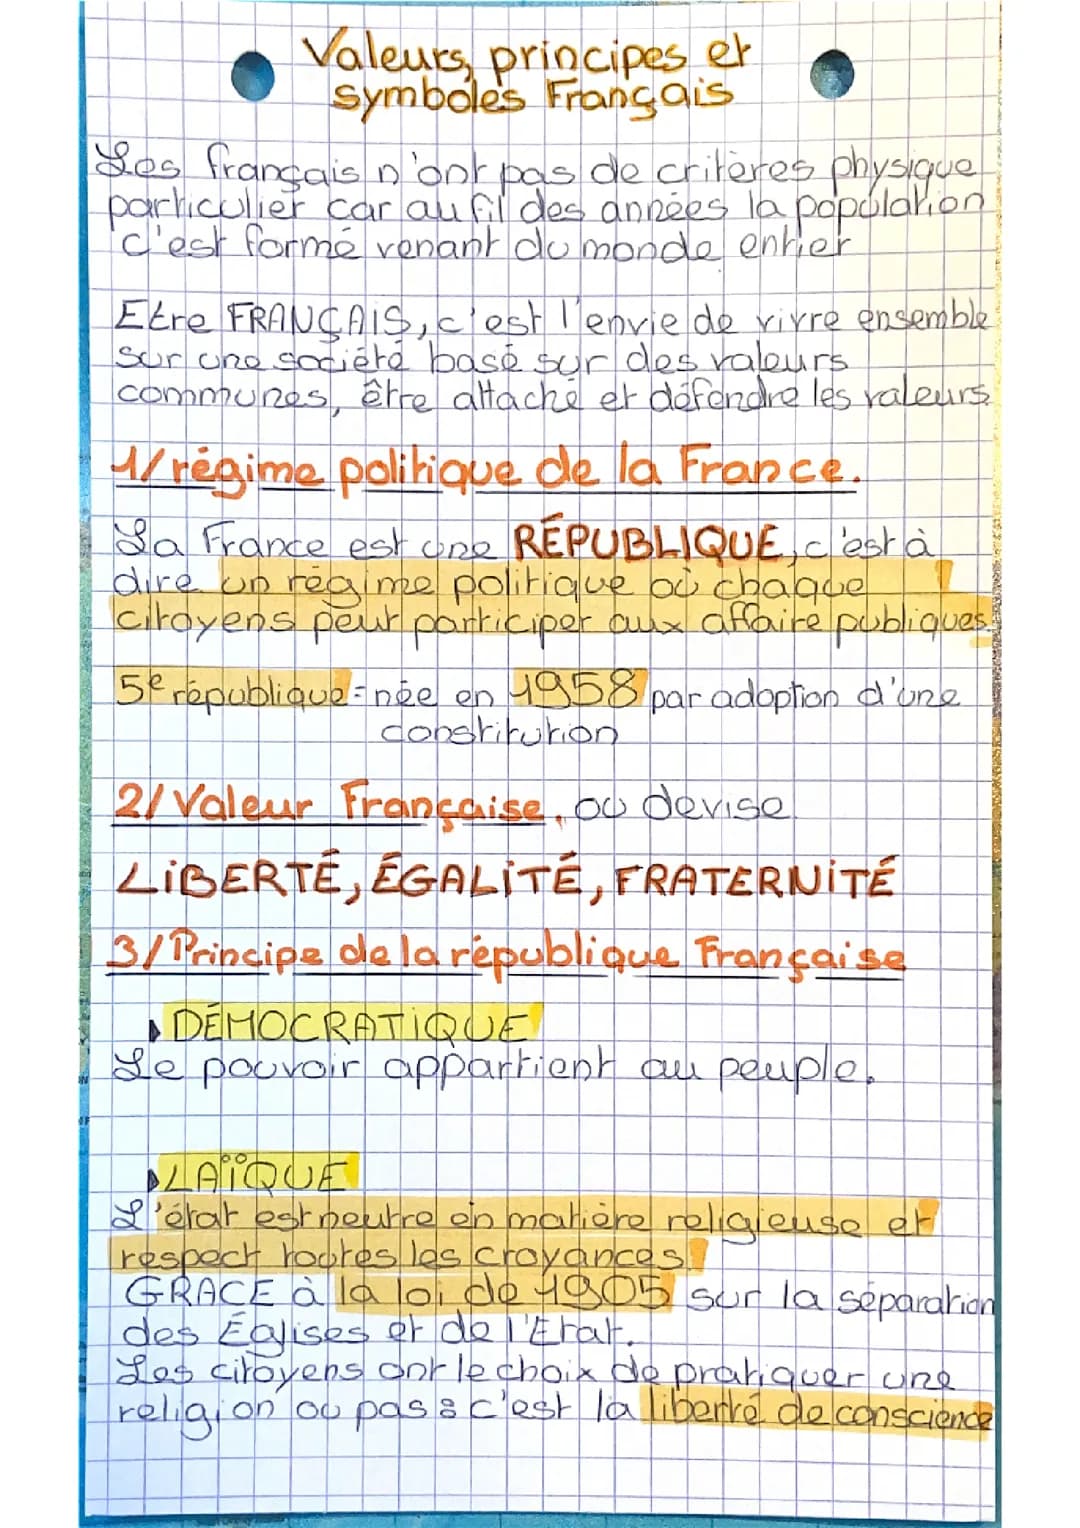 Valeurs, principes et
symboles Français
Les français n'ont pas de critères physique
particulier car au fil des années la population
c'est formé venant du monde entier
Etre FRANÇAIS, c'est l'envie de vivre ensemble
sur une société basé sur des valeurs
communes, être attaché et défendre les valeurs.
1/ régime politique de la France.
La France est une RÉPUBLIQUE, c'est à
dire un régime politique où chaque
citoyens peut participer aux affaire publiques.
5e république = née en 1958 par adoption d'une
constitution
2/ Valeur Française, ou devise
LIBERTÉ, ÉGALITÉ, FRATERNITÉ
3/ Principe de la république Française
DÉMOCRATIQUE
Le pouvoir appartient au peuple.
LAÏQUE
L'état est neutre en matière religieuse et
respect toutes les croyances
GRACE à la loi de 1905 sur la séparation
des Églises et de l'Etat.
Les citoyens ont le choix de pratiquer une
religion ou pas : c'est la liberté de conscience